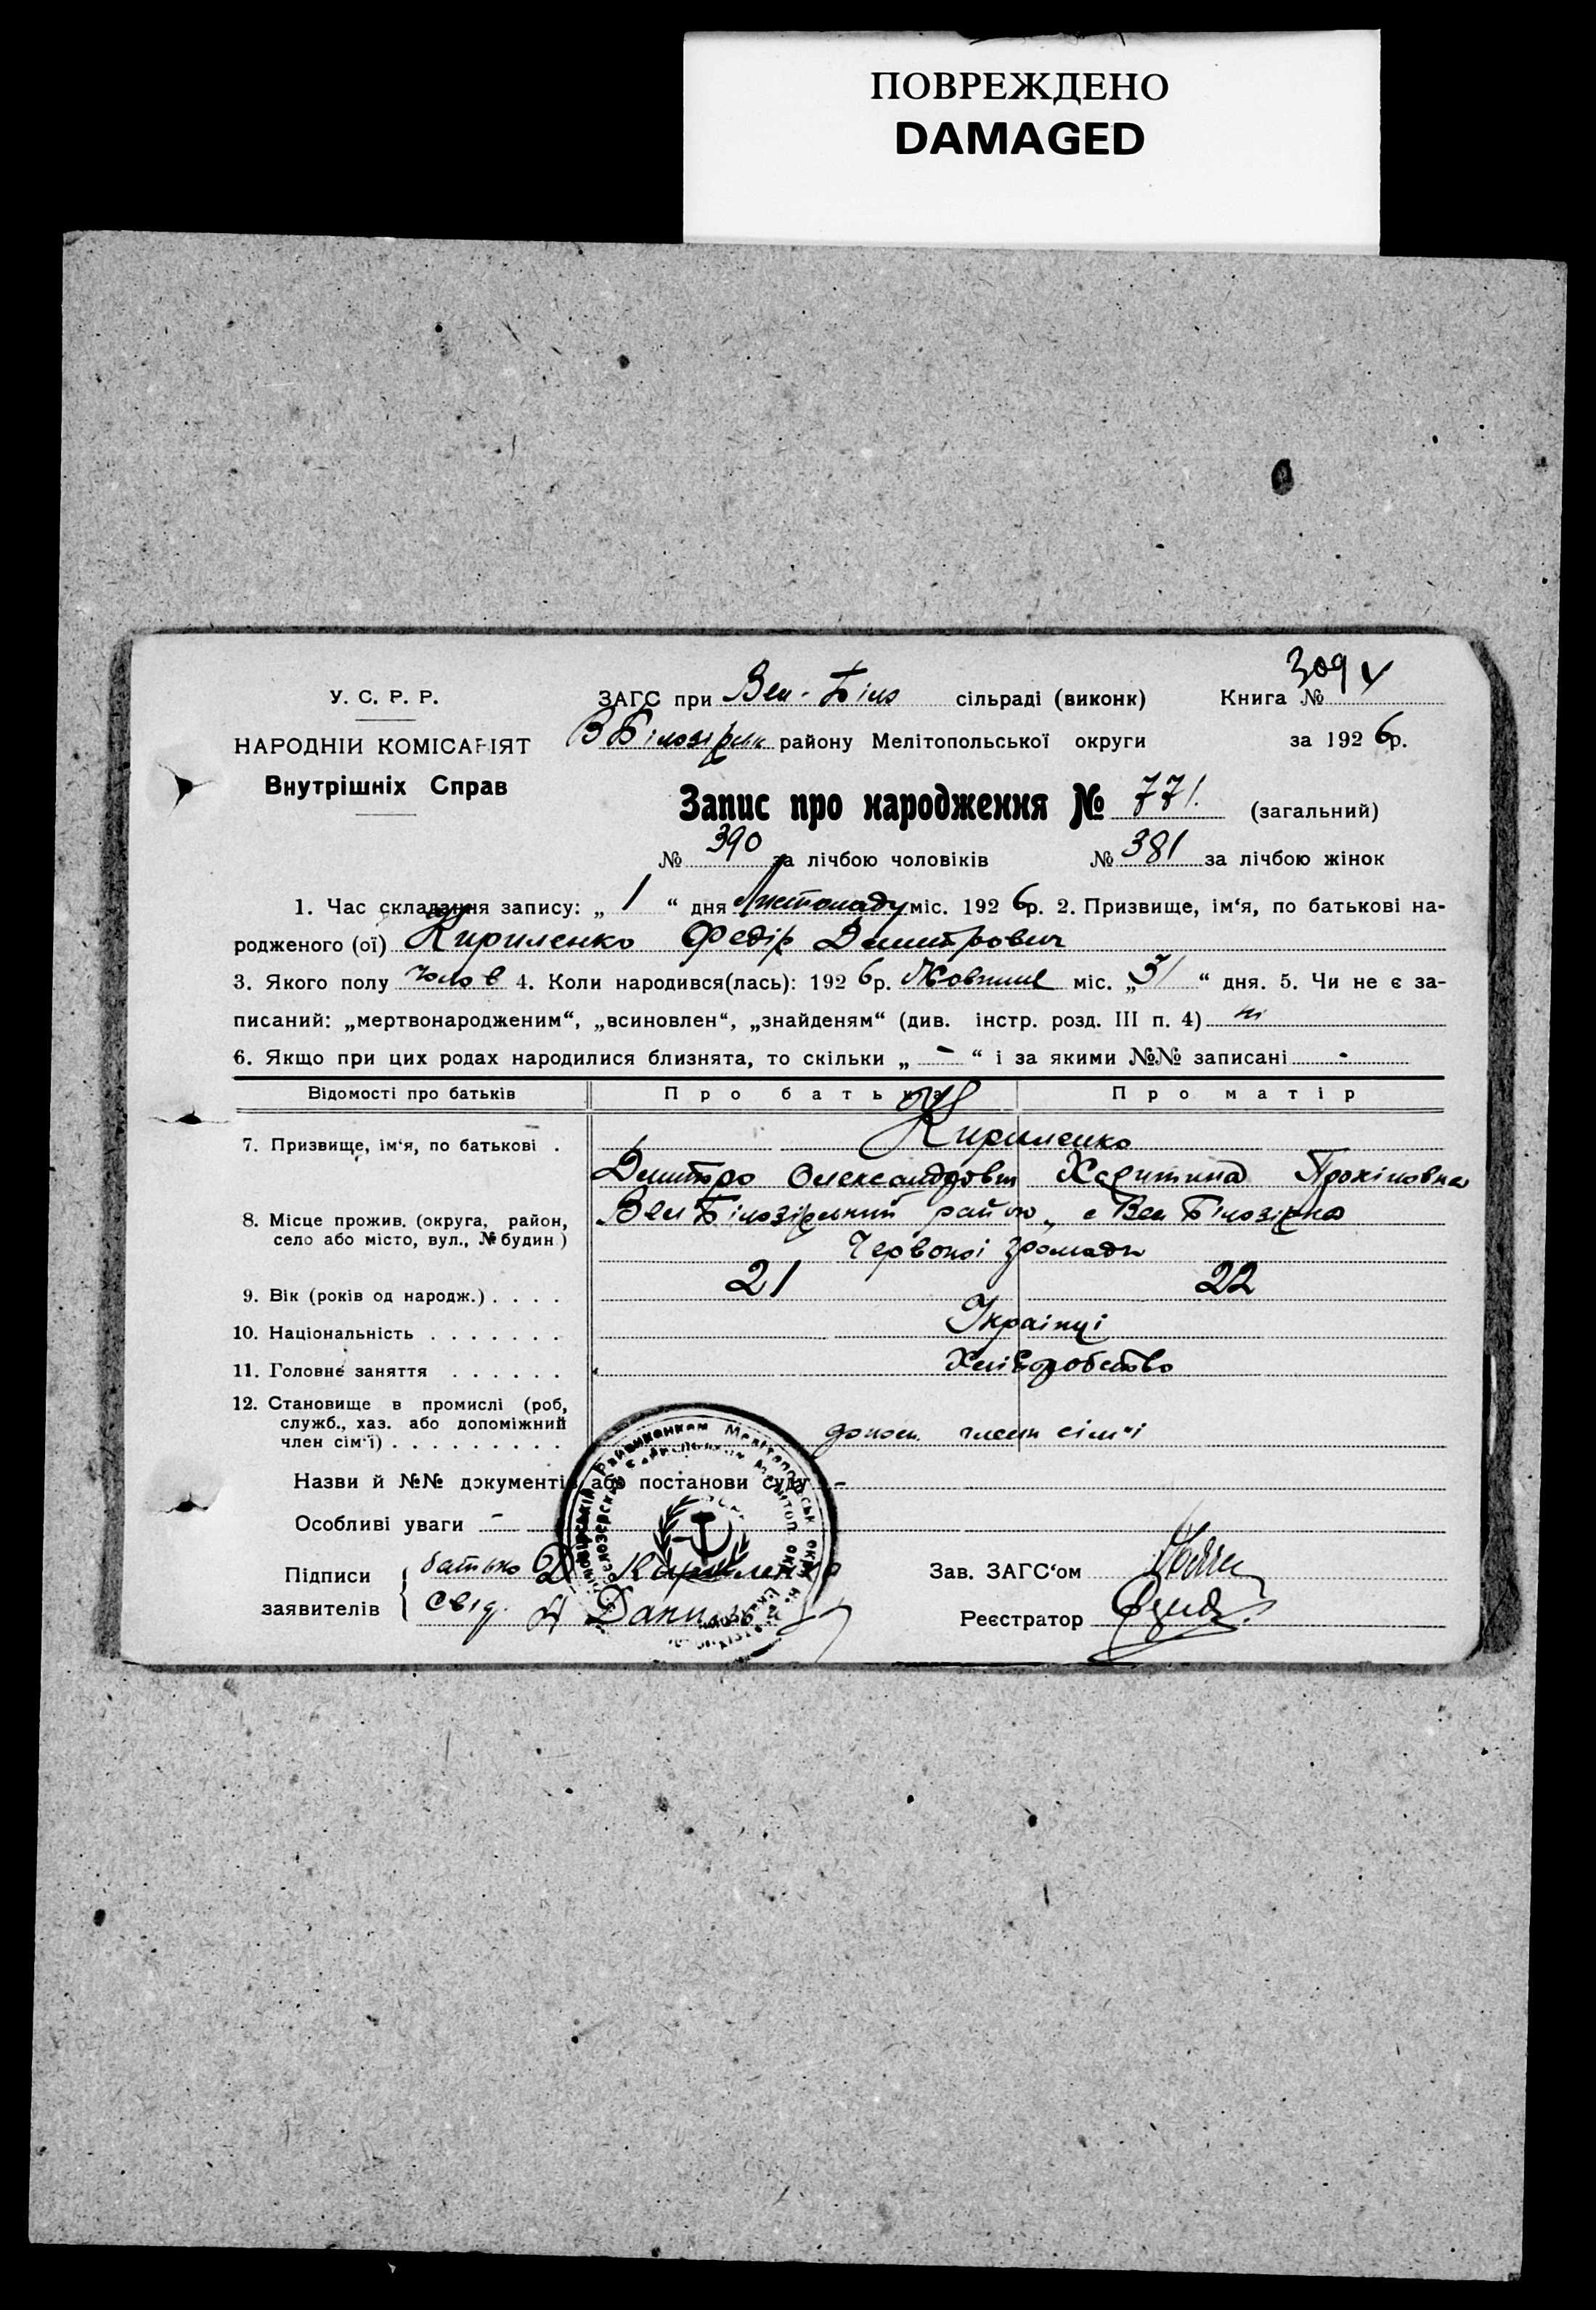 ПОВРЕЖДЕНО
DAMAGED
У. С. Р. Р.
НАРОДНІЙ КОМІСАРІЯТ
Внутрішніх Справ
ЗАГС при Вел-Біло сільраді (виконк) Книга № 309
В Білозірськ району Мелітопольської округи за 1926р.
Запис про народження № 771. (загальний)
№ 390 за лічбою чоловіків № 381 за лічбою жінок
1. Час складання запису: „ 1 “ дня Листопаду міс. 1926р. 2. Призвище, ім‘я, по батькові на-
родженого (ої) Кириленко Федір Дмитрович
3. Якого полу чолов 4. Коли народився(лась): 1926р. Жовтня міс. „31“ дня. 5. Чи не є за-
писаний: „мертвонародженим“, „всиновлен“, „знайденям“ (див. інстр. розд. III п. 4) ні
6. Якщо при цих родах народилися близнята, то скільки „ – “ і за якими №№ записані -
Відомості про батьків Про батька Про матір
7. Призвище, ім‘я, по батькові . Кириленко
Дмитро Олександрович Харитина
8. Місце прожив. (округа, район,
село або місто, вул., № будин.)
Вел Білозірський район, с Вел Білозірка
Червоної громади
9. Вік (років од народж.) . . . . 21 22
10. Національність . . . . . . . Українці
11. Головне заняття . . . . . . Хліборобство
12. Становище в промислі (роб,
служб., хаз. або допоміжний
член сім‘ї) . . . . . . . . . допом. член сім'ї
Назви й №№ документів або постанови суду –
Особливі уваги –
Підписи
заявителів
батько Д Кириленко
свід.
Зав. ЗАГС‘ом
Реєстратор